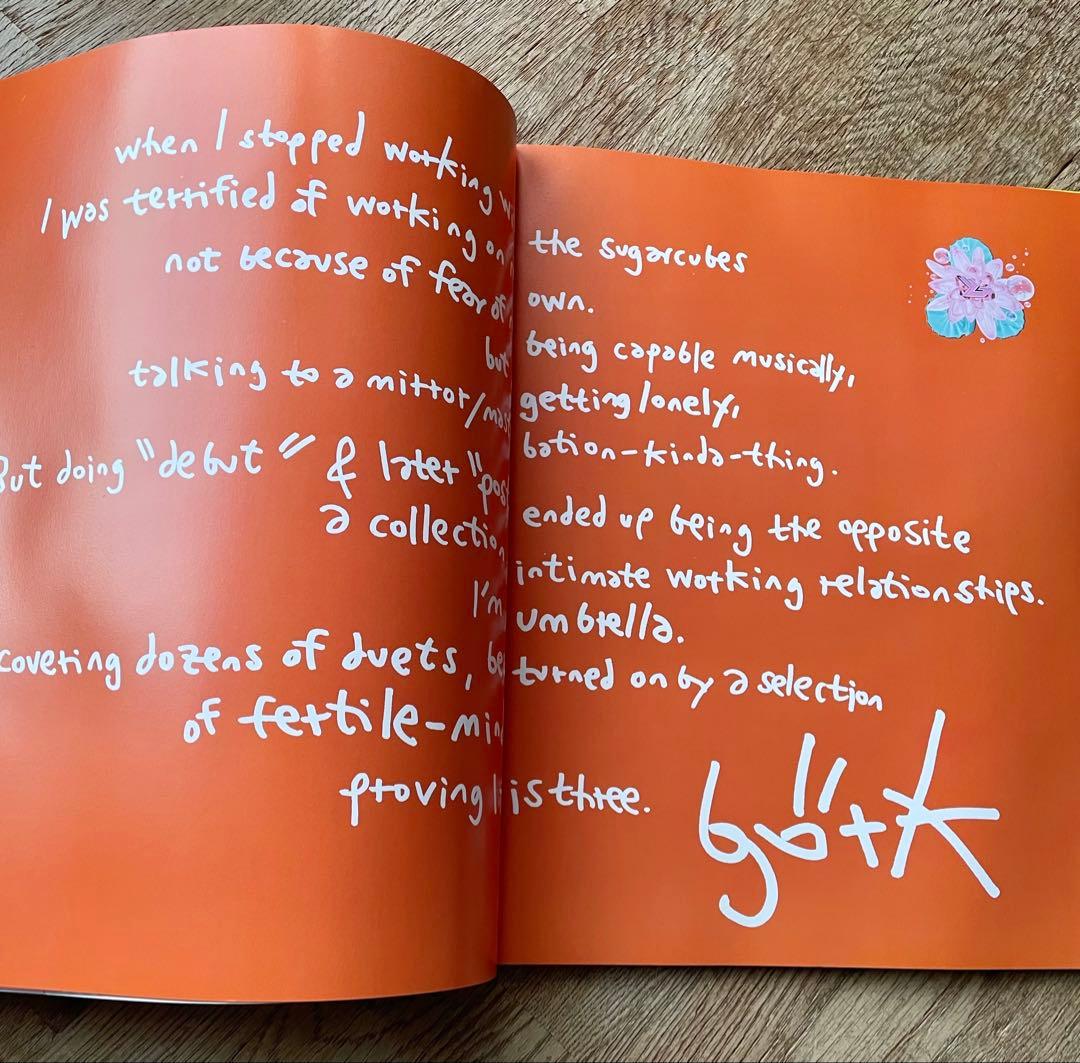 when I stopped working the sugarcubes
I was terrified of working on own.
not because of fear of being capable musically,
but getting lonely,
talking to a mirror/mas bation-kinda-thing.
But doing "debut" & later "pos ended up being the opposite
a collection intimate working relationships.
I'm umbrella.
covering dozens of duets, turned on by a selection
of fertile-min
proving is three.
björk